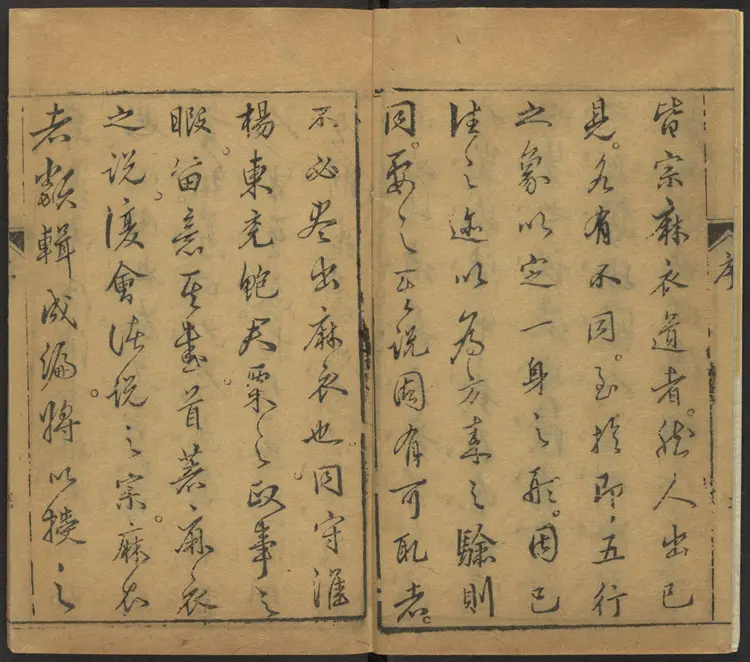 皆宗麻衣道者。然人出已
見。各有不同。至於即五行
之象以定一身之形。因已
往之迹以為方來之驗則
同。要之說固有可取者。
序
不必盡出麻衣也。同守淮
楊東鮑君栗之政事之
暇。留意其書。首著麻衣
之說。復會諸說之宗。麻衣
者類輯成編。將以授之